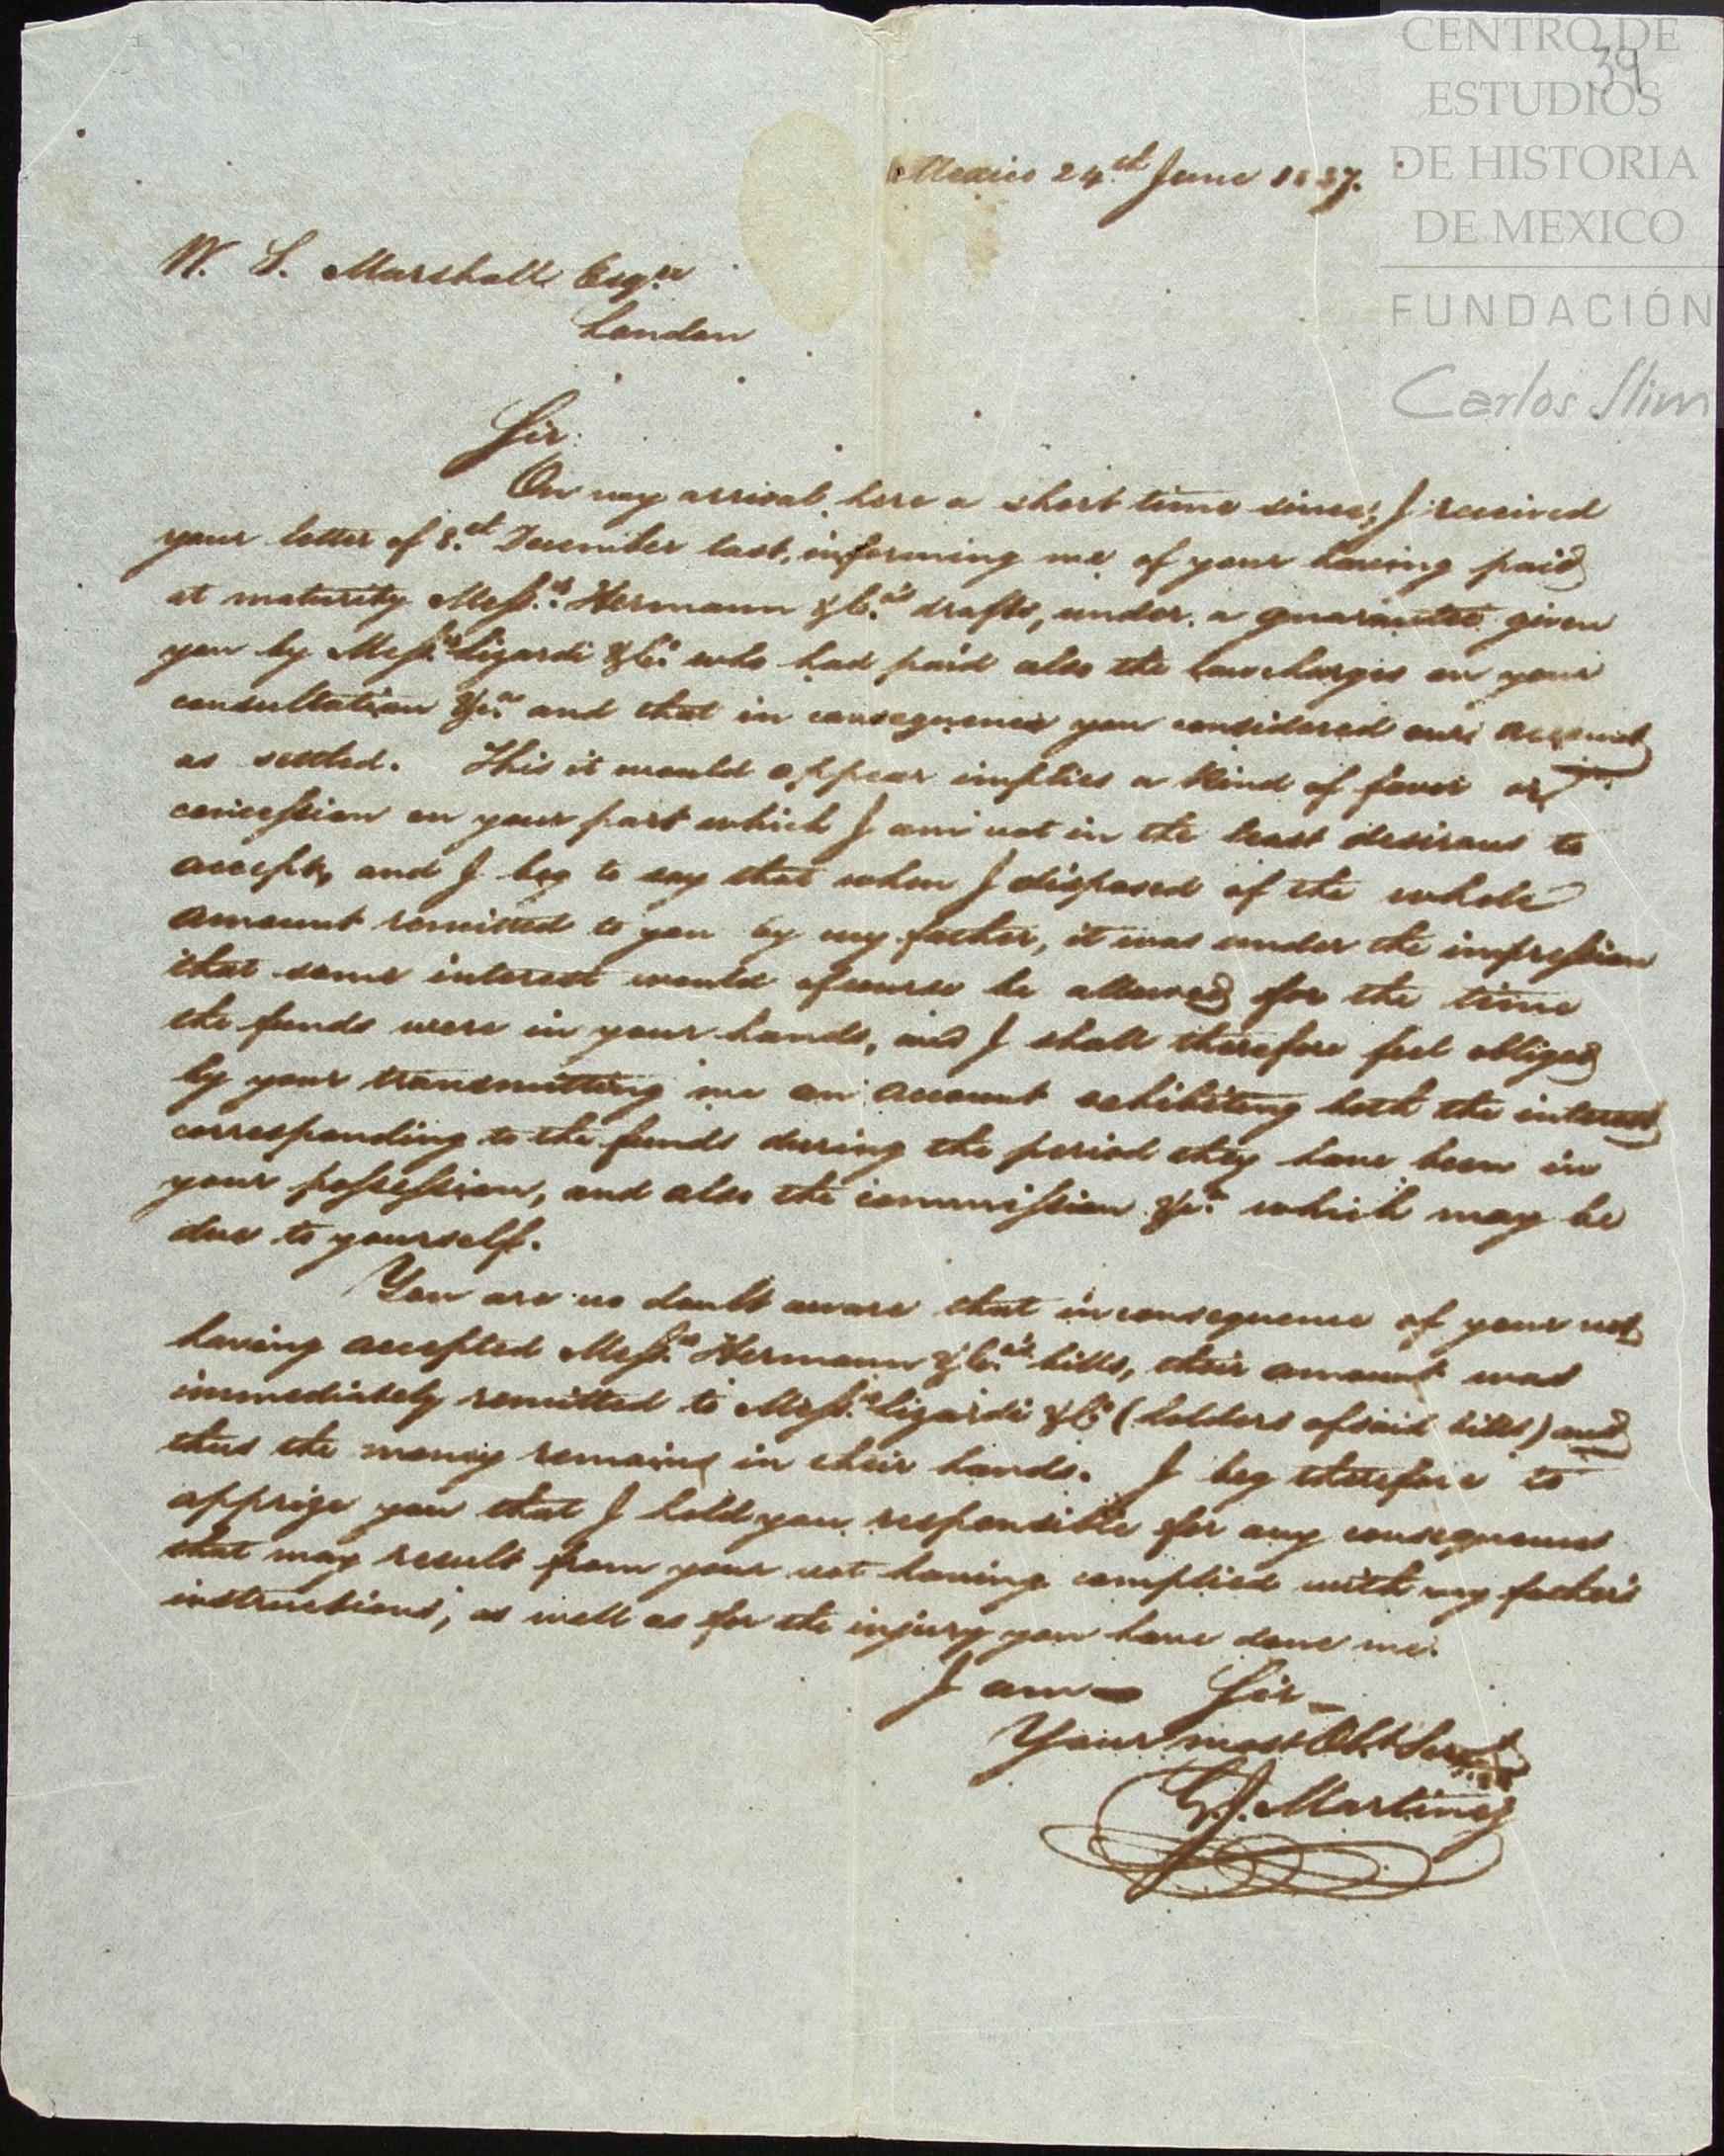 CENTRO DE
39
ESTUDIOS
DE HISTORIA
DE MEXICO
FUNDACIÓN
Carlos Slim
Mexico 24th June 1837.
W. S. Marshall Esqre
London
Sir:
On my arrival here a short time since, I received
your letter of 8th December last, informing me of your having paid
at maturity Messrs Hermann & Co's drafts, under a guarantee given
you by Messrs Lizardi & Co who had paid also the law charges on your
consultation &ca and that in consequence you considered our account
as settled. This it would appear implies a kind of favor or
concession on your part which I am not in the least desirous to
accept, and I beg to say that when I disposed of the whole
amount remitted to you by my father, it was under the impression
that some interest would of course be allowed for the time
the funds were in your hands, and I shall therefore feel obliged
by your transmitting me an account exhibiting both the interest
corresponding to the funds during the period they have been in
your possession, and also the commission &ca which may be
due to yourself.
You are no doubt aware that in consequence of your not
having accepted Messrs Hermann & Co's bills, their amount was
immediately remitted to Messrs Lizardi & Co (holders of said bills) and
thus the money remains in their hands. I beg therefore to
apprize you that I hold you responsible for any consequences
that may result from your not having complied with my father's
instructions, as well as for the injury you have done me.
I am Sir
Your most Obt Servt
J. Martinez